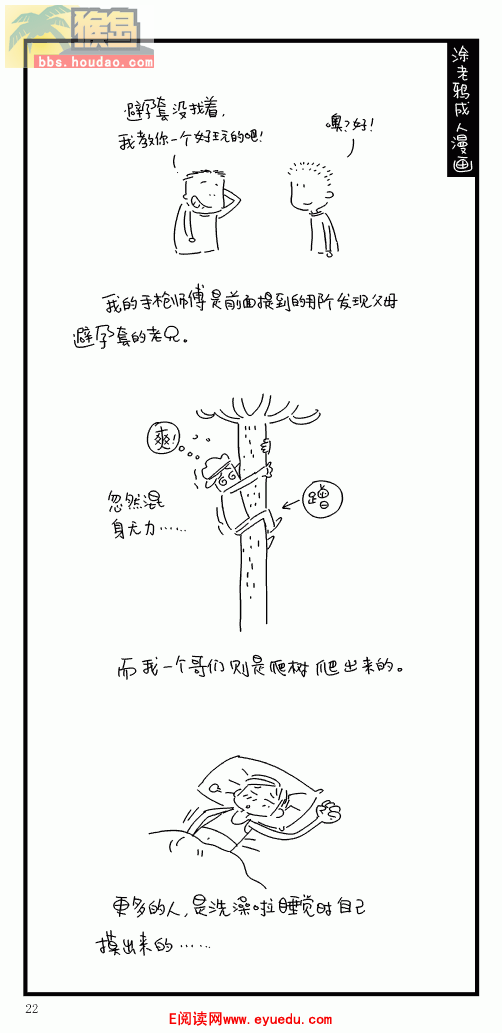 猴岛
bbs.houdao.com
涂老鸦成人漫画
避孕套没找着,
我教你一个好玩的吧!
噢?好!
我的手枪师傅是前面提到的那个发现父母
避孕套的老兄。
爽!
忽然混
身无力……
蹭
而我一个哥们则是爬树爬出来的。
更多的人,是洗澡啦睡觉时自己
摸出来的……
22
E阅读网www.eyuedu.com